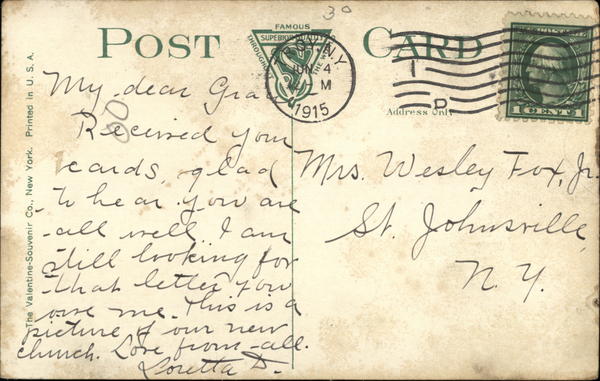 30
POST CARD
FAMOUS
SUPERIOR QUALITY
THROUGHOUT THE WORLD
VSC
N.Y.
JUN 4
M
1915
1
D
Address Only
1 CENT 1
The Valentine-Souvenir Co., New York. Printed in U. S. A.
My dear Gra
80
Received your
cards, glad
to hear you are
all well. I am
still looking for
that letter you
owe me. This is a
picture of our new
church. Love from all.
Loretta D.
Mrs. Wesley Fox, Jr.
St. Johnsville,
N. Y.